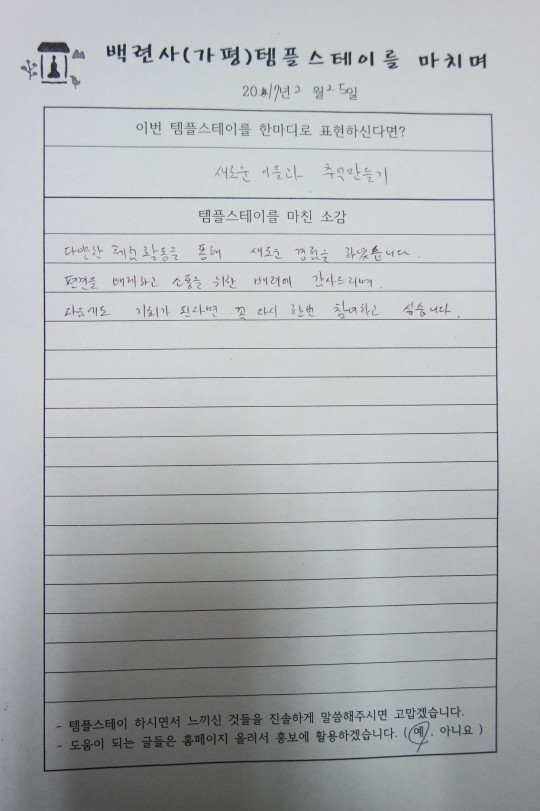 백련사(가평)템플스테이를 마치며
2017년 2월 25일
이번 템플스테이를 한마디로 표현하신다면?
새로운 이들과 추억만들기
템플스테이를 마친 소감
다양한 체험활동을 통해 새로운 경험을 하였습니다.
편견을 배제하고 소통을 위한 배려에 감사드리며.
다음에도 기회가 된다면 꼭 다시 한번 참여하고 싶습니다.
- 템플스테이 하시면서 느끼신 것들을 진솔하게 말씀해주시면 고맙겠습니다.
- 도움이 되는 글들은 홈페이지 올려서 홍보에 활용하겠습니다. ( 예 , 아니요 )